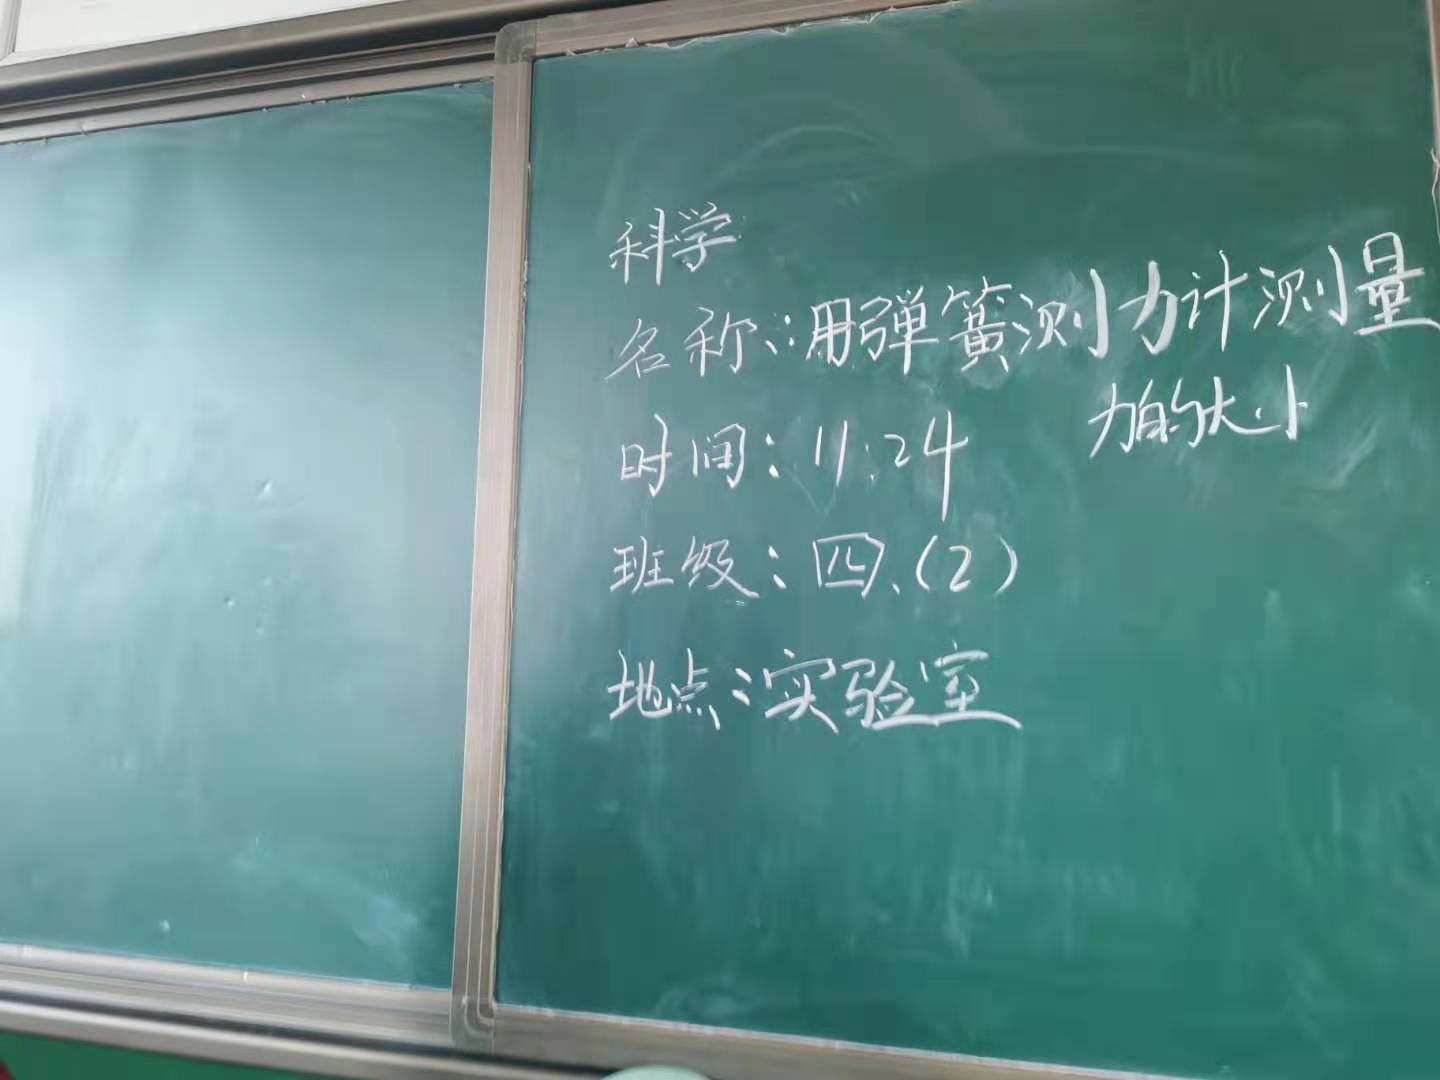 科学
名称:用弹簧测力计测量
力的大小
时间:11.24
班级:四、(2)
地点:实验室